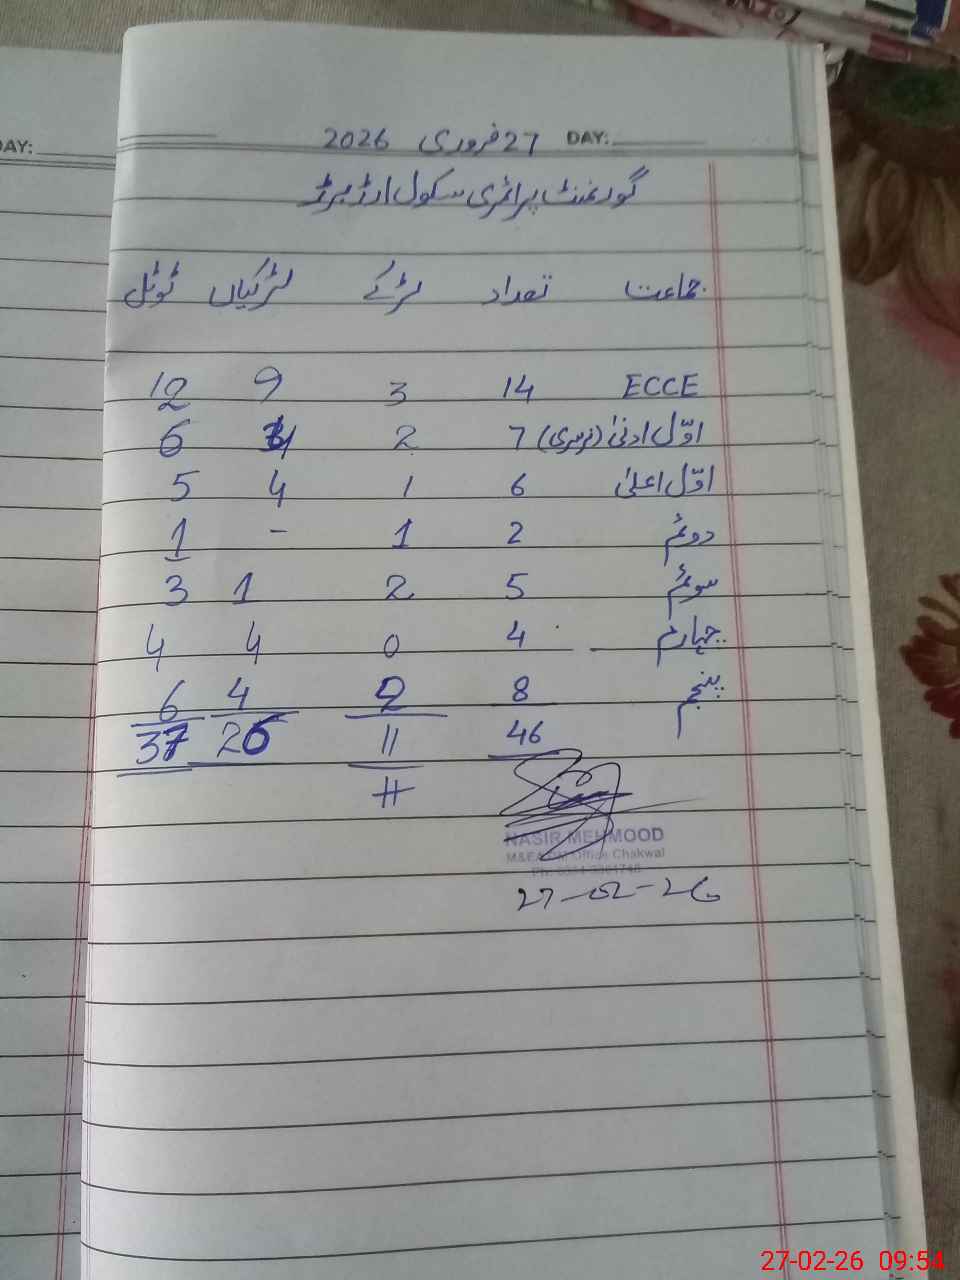 DAY:
27 فروری 2026 DAY:
گورنمنٹ پرائمری سکول
جماعت تعداد لڑکے لڑکیاں ٹوٹل
ECCE 14 3 9 12
اوّل ادنیٰ (نرسری) 7 2 4 6
اوّل اعلیٰ 6 1 4 5
دوئم 2 1 - 1
سوئم 5 2 1 3
چہارم 4 0 4 4
پنجم 8 2 4 6
46 11 26 37
NASIR MEHMOOD
M&EA DM Office Chakwal
27-02-26
27-02-26 09:54